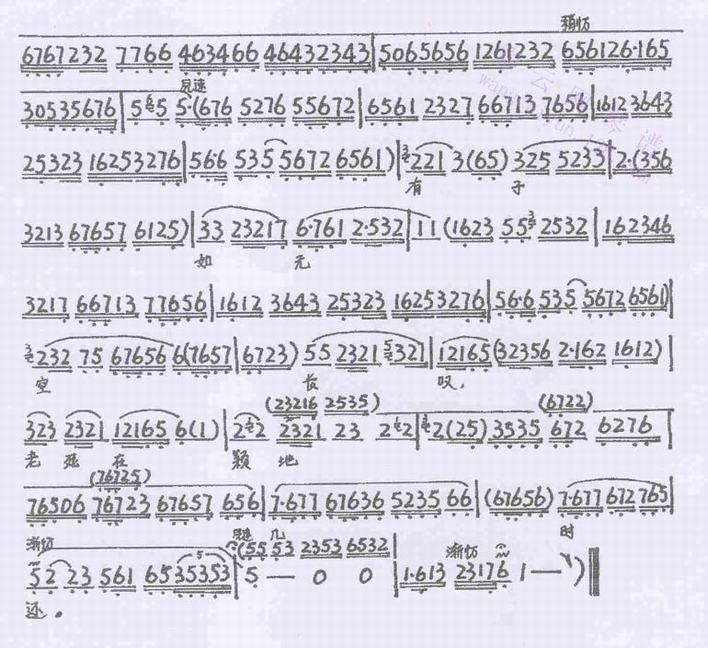 渐切
6767232 7766 463466 46432343|5065656 1261232 656126·165
原速
30535676|5 6/5 5 5·(676 5276 55672|6561 2327 66713 7656|1612 3643
25323 16253276|566 535 5672 6561)|221 3(65) 325 5233|2·(356
有 子
3213 67657 6125)|33 23217 6·761 2·532|11 (1623 55 2532|162346
如 元
3217 66713 77656|1612 3643 25323 16253276|56·6 535 5672 6561)
232 75 67656 6(7657|6723) 55 2321 321|12165(32356 2·162 1612)|
空 长 叹,
(23216 2535) (6722)
323 2321 12165 6(1)|2 2 2321 23 2 2|2(25) 3535 672 6276|
老 死 在 颗 地
(76725)
76506 76723 67657 656|7·677 67636 5235 66|(67656) 7·677 672765|
渐切 几 时
(55 53 2353 6532 渐切
52 23 561 6535353|5 — 0 0|1·613 23176 1 —)
还。